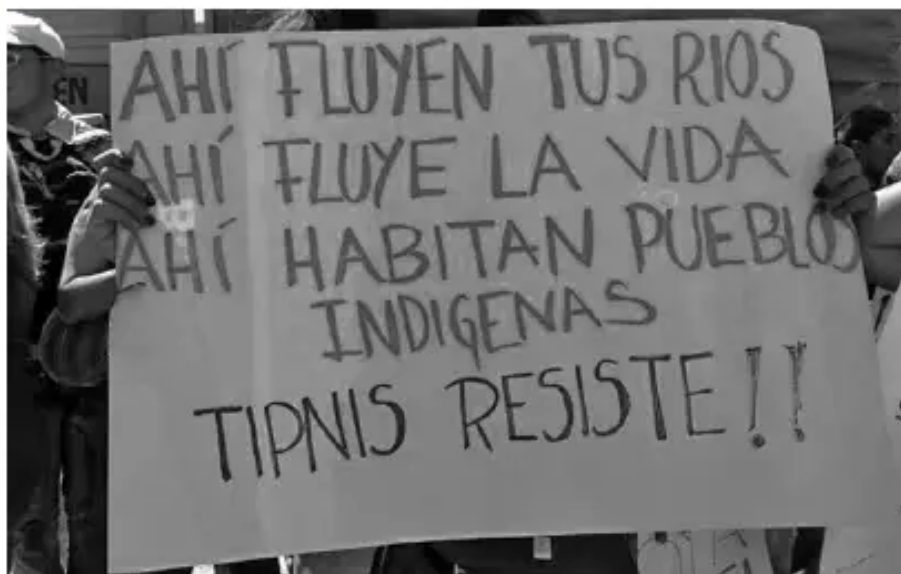 AHÍ FLUYEN TUS RIOS
AHÍ FLUYE LA VIDA
AHÍ HABITAN PUEBLOS
INDIGENAS
TIPNIS RESISTE!!
EN